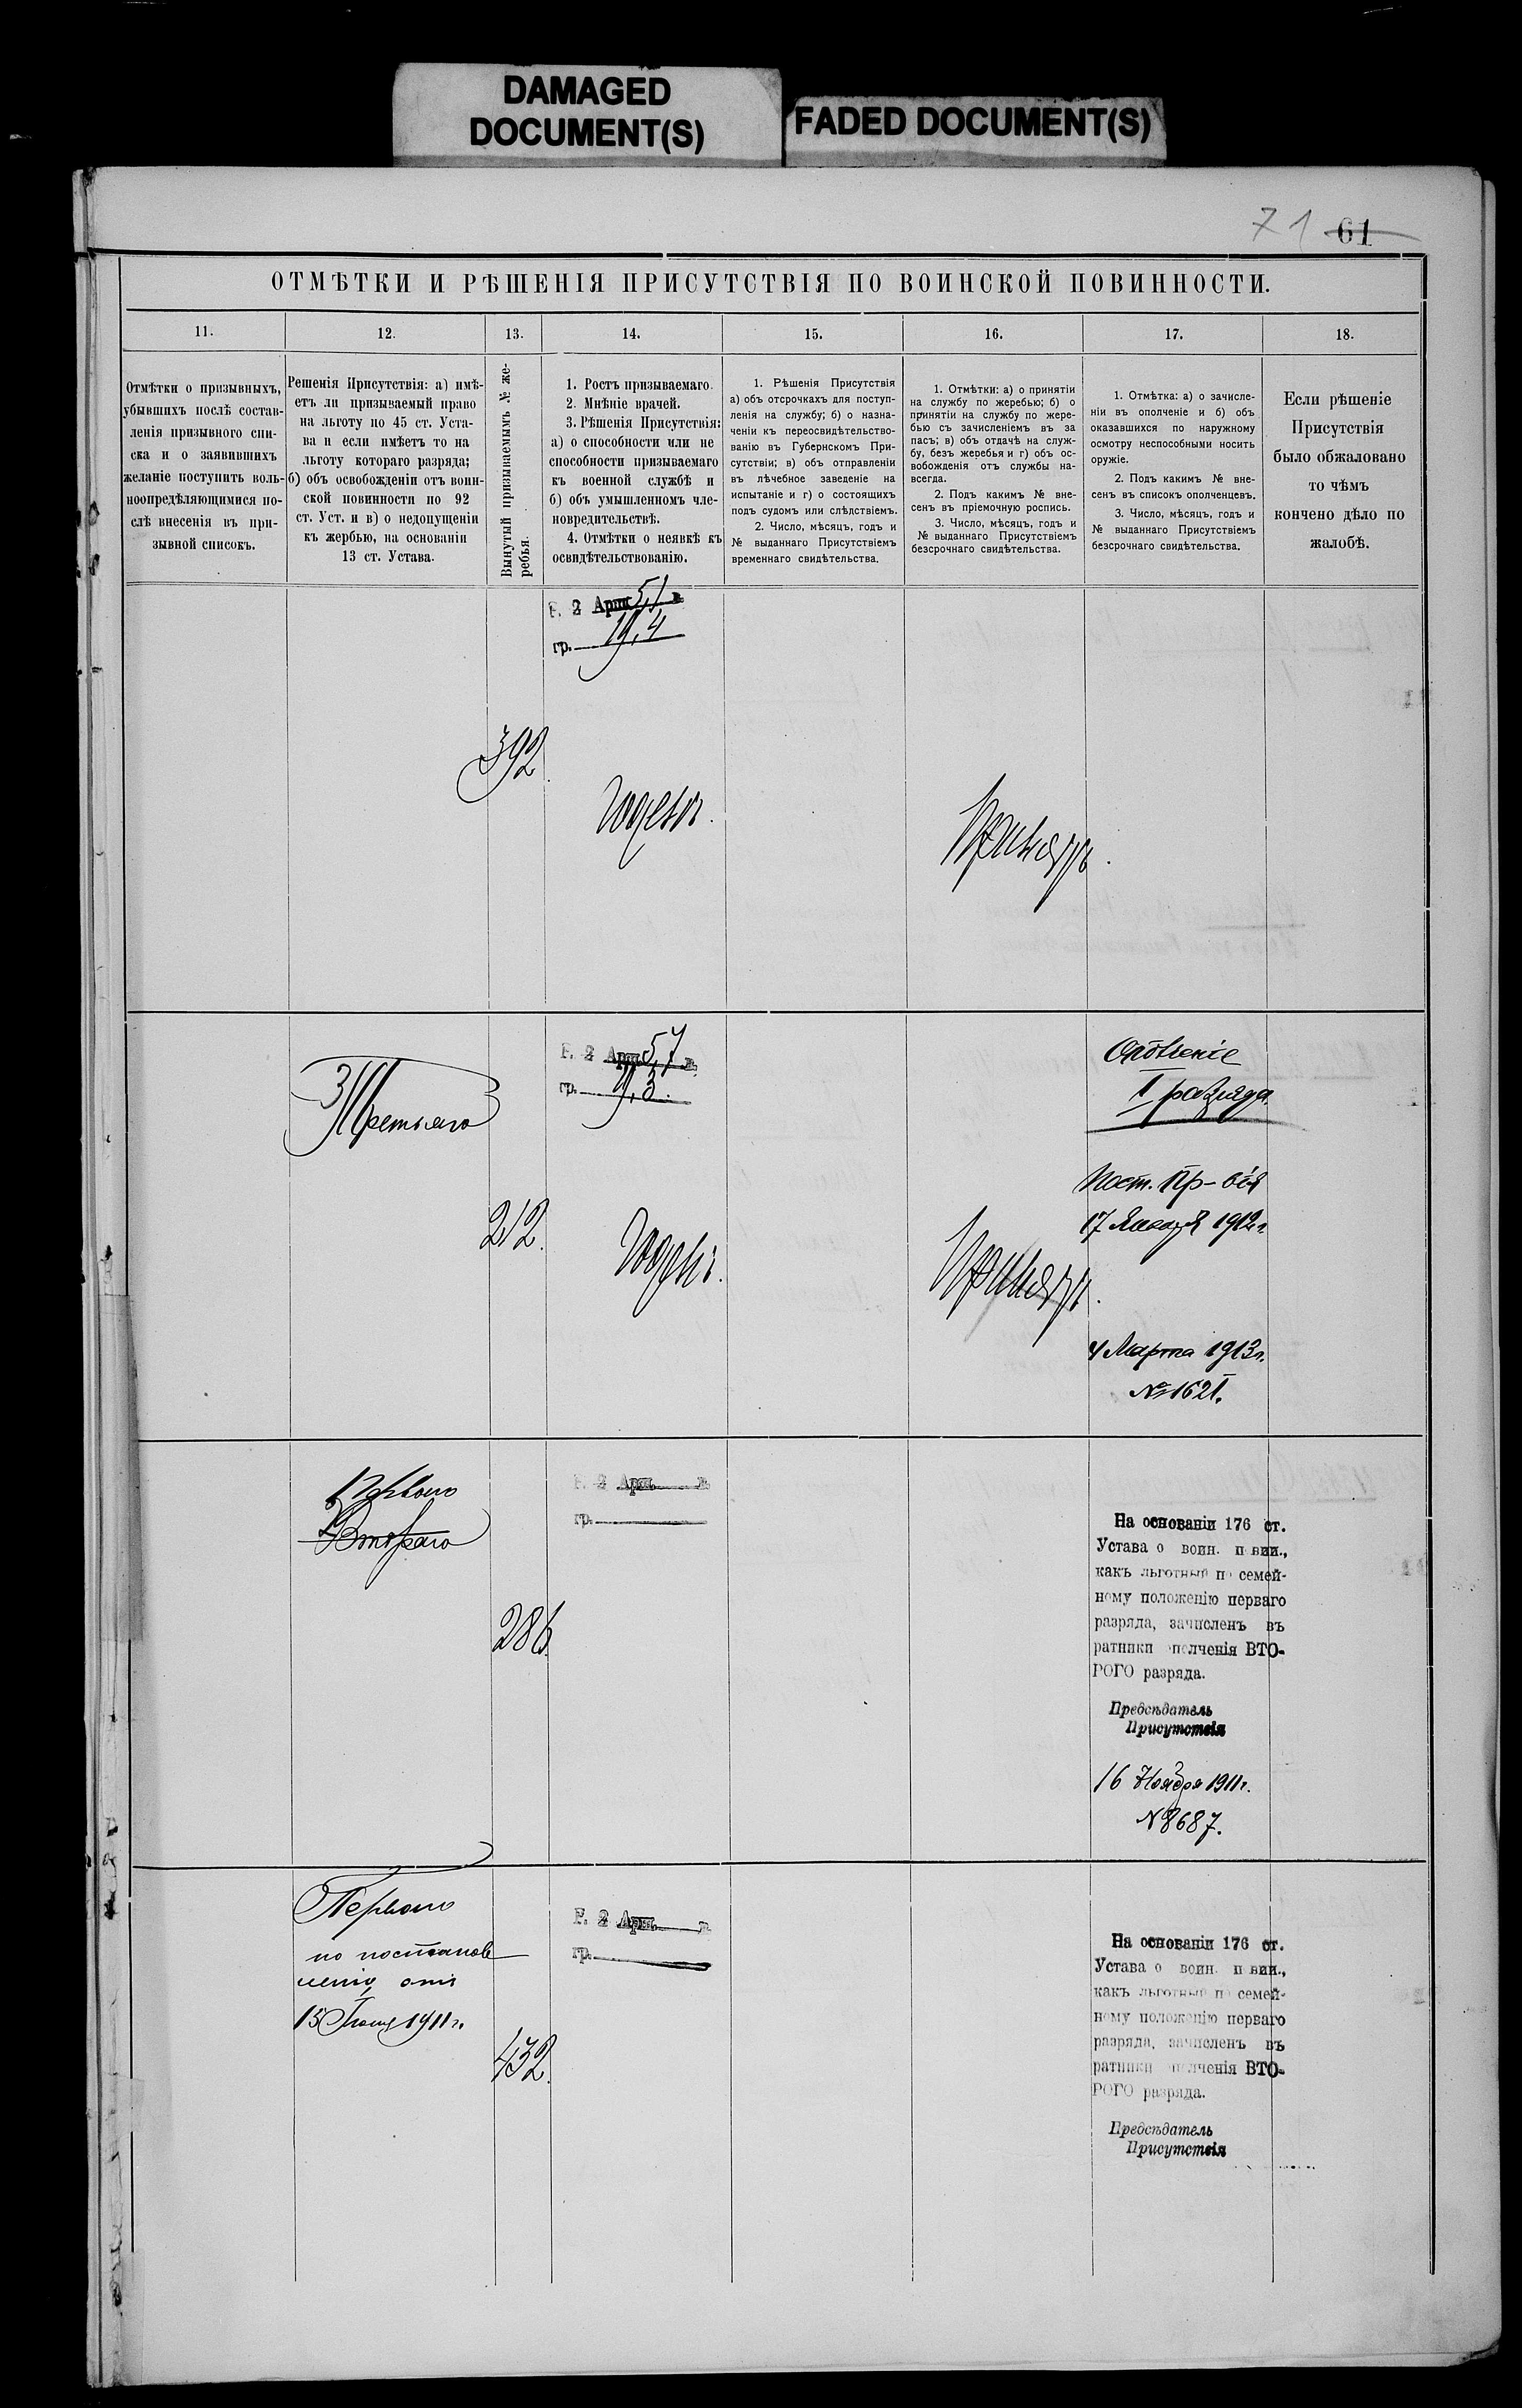 DAMAGED
DOCUMENT(S)
FADED DOCUMENT(S)
71 61
ОТМѢТКИ И РѢШЕНІЯ ПРИСУТСТВІЯ ПО ВОИНСКОЙ ПОВИННОСТИ.
11.
12.
13.
14.
15.
16.
17.
18.
Отмѣтки о призывныхъ,
убывшихъ послѣ состав-
ленія призывного спи-
ска и о заявившихъ
желаніе поступить воль-
ноопредѣляющимися по-
слѣ внесенія въ при-
зывной списокъ.
Решенія Присутствія: а) имѣ-
етъ ли призываемый право
на льготу по 45 ст. Уста-
ва и если имѣетъ то на
льготу котораго разряда;
б) объ освобожденіи отъ воин-
ской повинности по 92
ст. Уст. и в) о недопущеніи
къ жербью, на основаніи
13 ст. Устава.
Вынутый призываемымъ № же-
ребья.
1. Ростъ призываемаго.
2. Мнѣніе врачей.
3. Рѣшенія Присутствія:
а) о способности или не
способности призываемаго
къ военной службѣ и
б) объ умышленномъ чле-
новредительствѣ.
4. Отмѣтки о неявкѣ къ
освидѣтельствованію.
1. Рѣшенія Присутствія
а) объ отсрочкахъ для поступ-
ленія на службу; б) о назна-
ченіи къ переосвидѣтельство-
ванію въ Губернскомъ При-
сутствіи; в) объ отправленіи
въ лѣчебное заведеніе на
испытаніе и г) о состоящихъ
подъ судомъ или слѣдствіемъ.
2. Число, мѣсяцъ, годъ и
№ выданнаго Присутствіемъ
временнаго свидѣтельства.
1. Отмѣтки: а) о принятіи
на службу по жеребью; б) о
принятіи на службу по жере-
бью съ зачисленіемъ въ за
пасъ; в) объ отдачѣ на служ-
бу, безъ жеребья и г) объ ос-
вобожденія отъ службы на-
всегда.
2. Подъ какимъ № вне-
сенъ въ пріемочную роспись.
3. Число, мѣсяцъ, годъ и
№ выданнаго Присутствіемъ
безсрочнаго свидѣтельства.
1. Отмѣтка: а) о зачисле-
ніи въ ополченіе и б) объ
оказавшихся по наружному
осмотру неспособными носить
оружіе.
2. Подъ какимъ № вне-
сенъ въ списокъ ополченцевъ.
3. Число, мѣсяцъ, годъ и
№ выданнаго Присутствіемъ
безсрочнаго свидѣтельства.
Если рѣшеніе
Присутствія
было обжаловано
то чѣмъ
кончено дѣло по
жалобѣ.
Р. 2 Арш. 5,1 в.
гр.
392
Годенъ.
Принятъ.
Третьяго
212.
Р. 2 Арш. 5,7 в.
гр.
Годенъ.
Принятъ.
Ополченіе
I разряда
Пост. Пр-вія
17 Января 1912 г.
4 Марта 1913 г.
№ 1621.
Перваго
Второго
286.
Р. 2 Арш. в.
гр.
На основаніи 176 ст.
Устава о воин. п вин.,
какъ льготный по семей-
ному положенію перваго
разряда, зачисленъ въ
ратники ополченія ВТО-
РОГО разряда.
Предсѣдатель
Присутствія
16 Ноября 1911 г.
№ 8687.
Перваго
по постанов
ленію отъ
1911 г.
432.
Р. 2 Арш. в.
гр.
На основаніи 176 ст.
Устава о воин. п вин.,
какъ льготный по семей-
ному положенію перваго
разряда, зачисленъ въ
ратники ополченія ВТО-
РОГО разряда.
Предсѣдатель
Присутствія